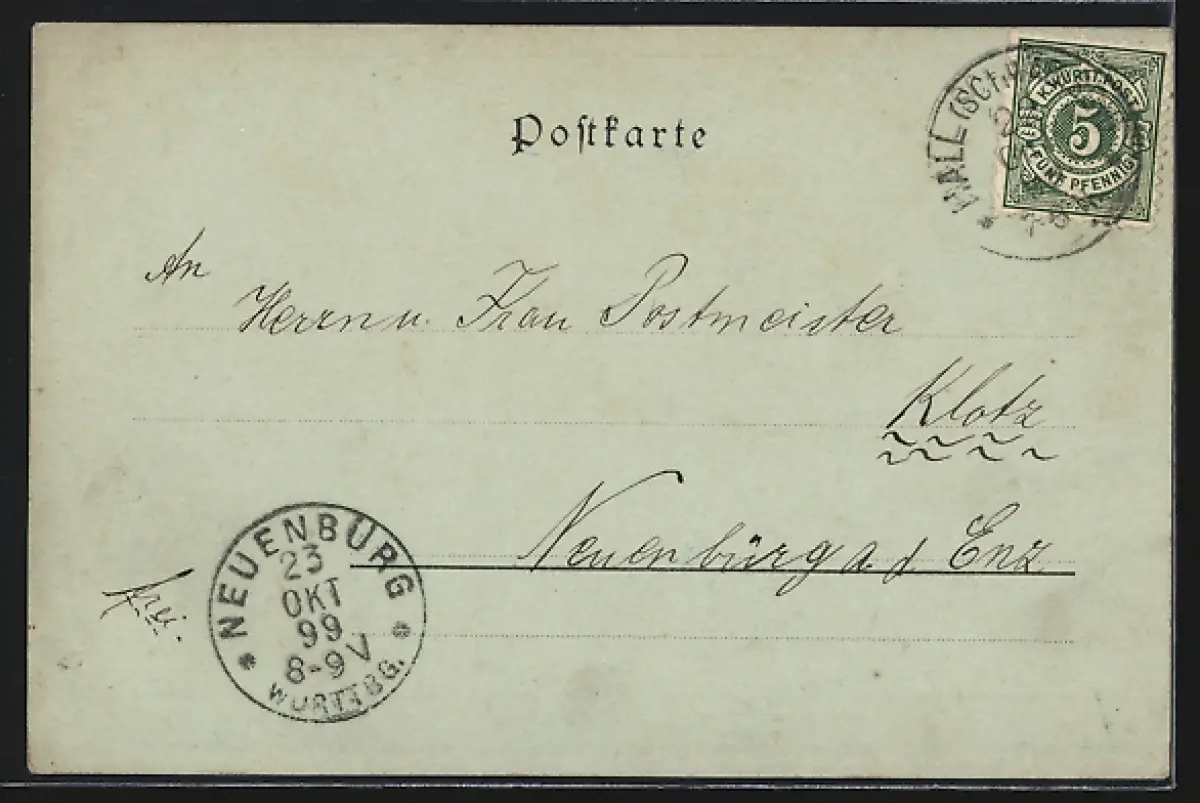 Postkarte
HALL (SCH
K.WÜRTT.POST
5
FÜNF PFENNIG
An
Herrn u. Frau Postmeister
Klotz
Neuenbürg a. d Enz
frei.
NEUENBÜRG
23
OKT
99
8-9 V
WÜRTTBG.